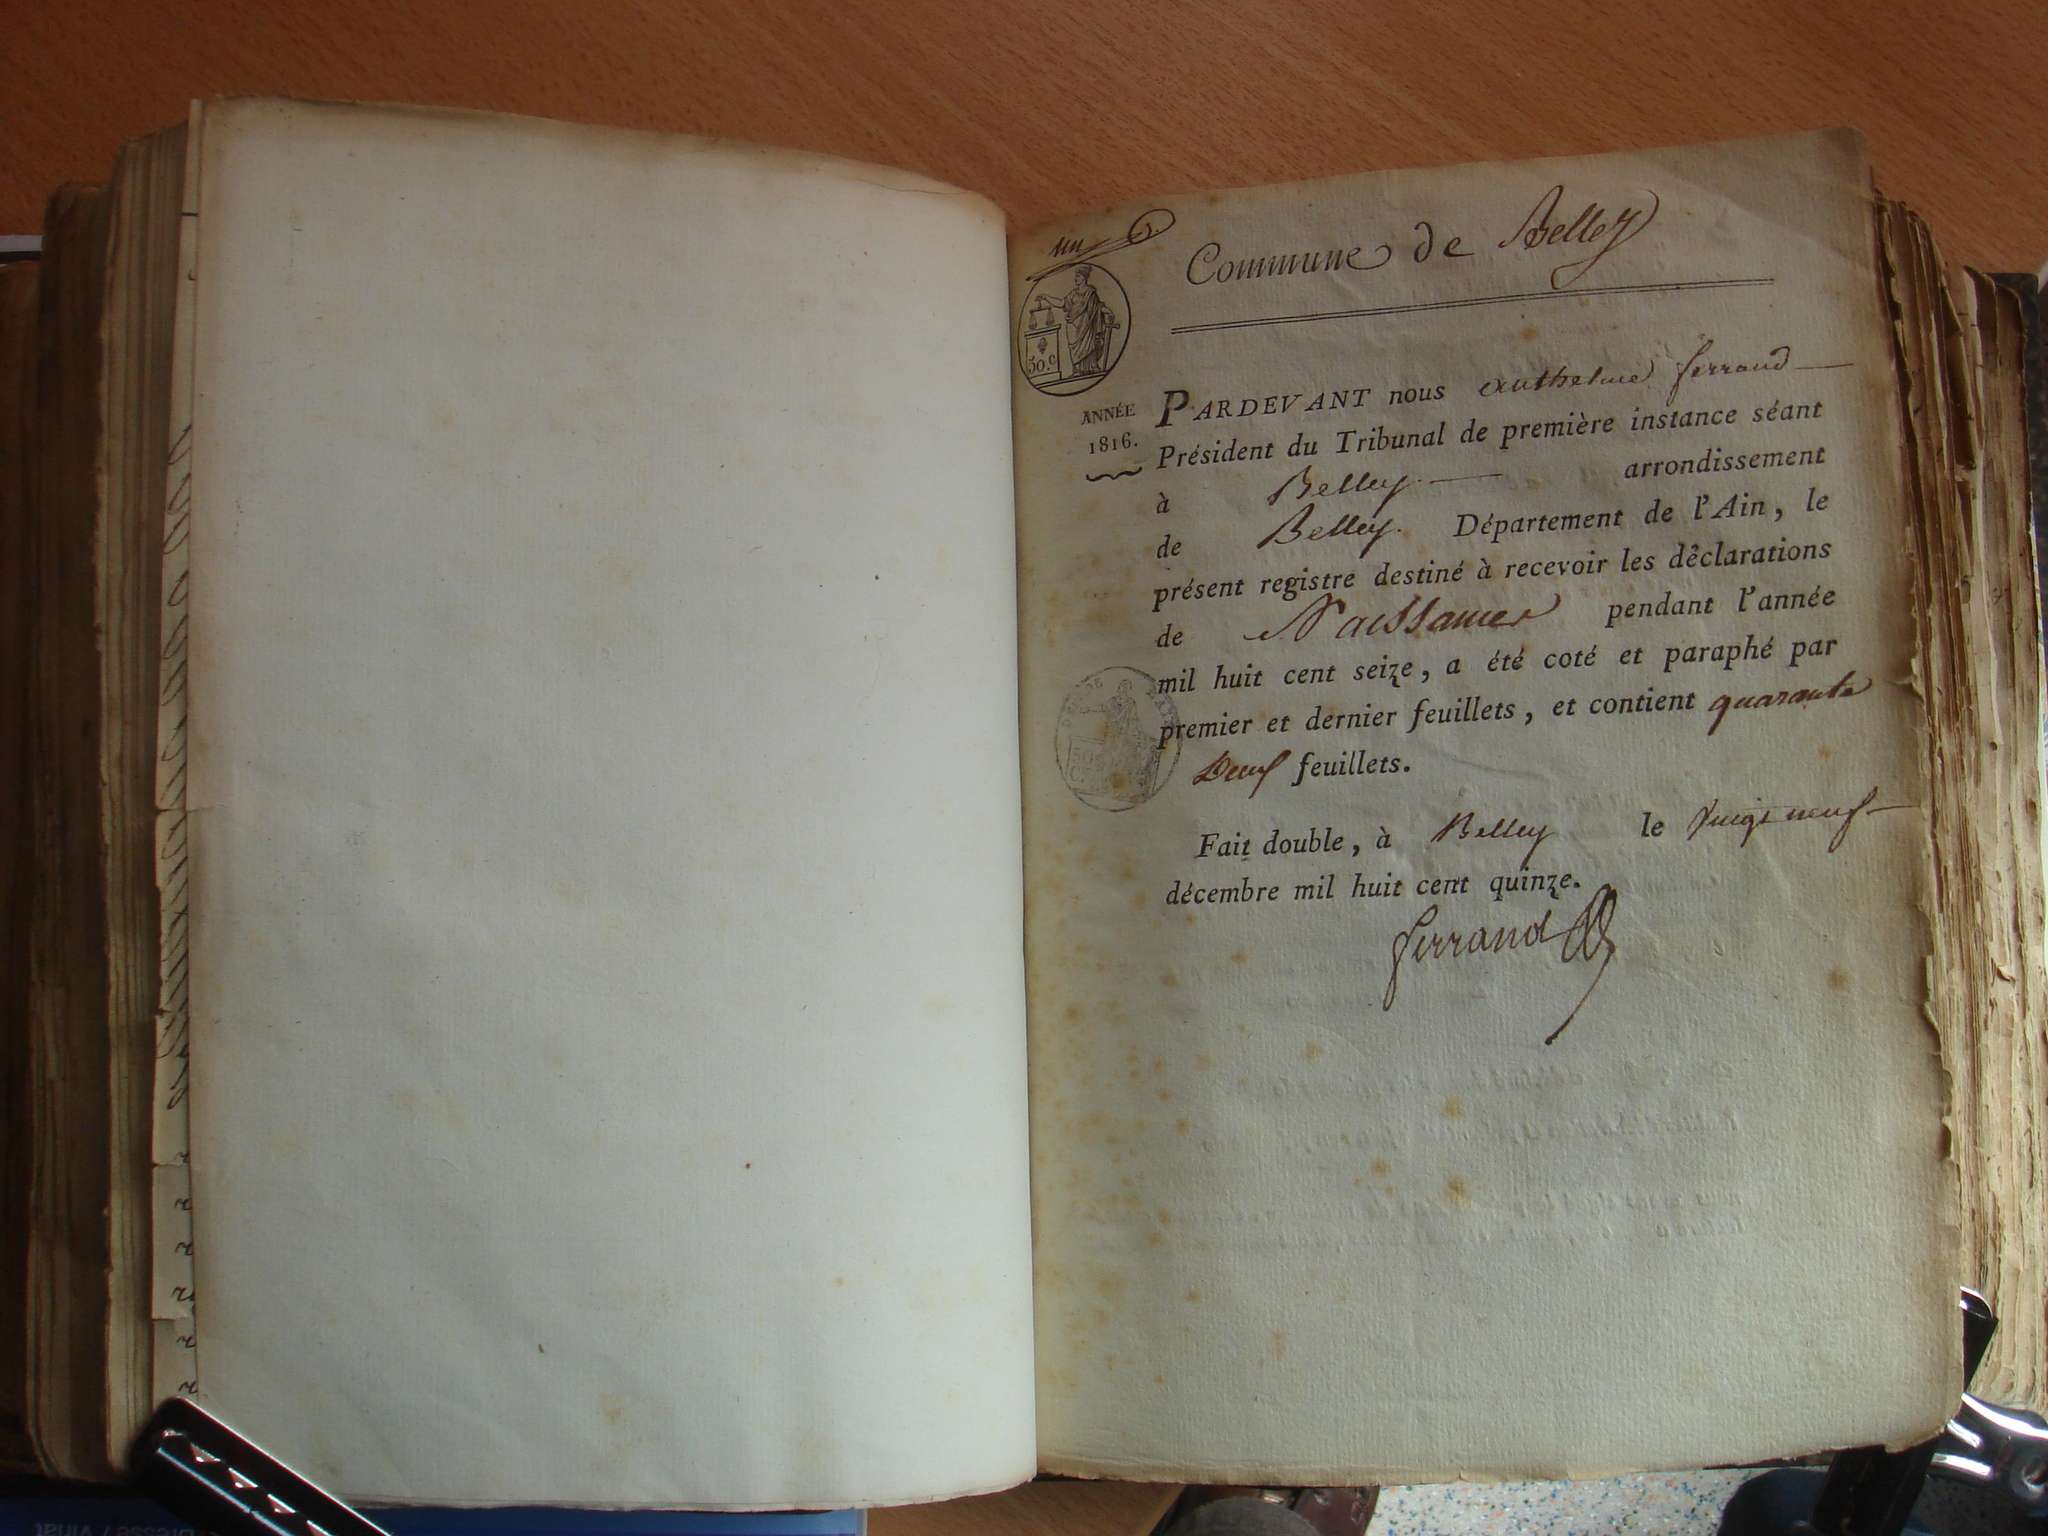 un
Commune de Belley
50.c
ANNÉE
1816.
PARDEVANT nous anthelme ferrand
Président du Tribunal de première instance séant
à Belley. arrondissement
de Belley. Département de l'Ain, le
présent registre destiné à recevoir les déclarations
de Naissances pendant l'année
mil huit cent seize, a été coté et paraphé par
premier et dernier feuillets, et contient quarante
feuillets.
Fait double, à Belley le vingt neuf
décembre mil huit cent quinze.
ferrand